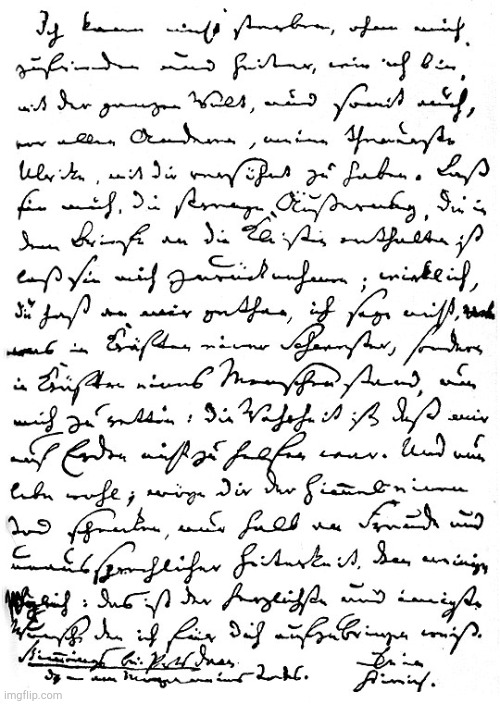 Ich kann nicht sterben, ohne mich,
zufrieden und heiter, wie ich bin,
mit der ganzen Welt, und somit auch,
vor allen Anderen, meine theuerste
Ulrike, mit Dir versöhnt zu haben. Laß
sie mich, die strenge Äußerung, die in
dem Briefe an die Kleisten enthalten ist
laß sie mich zurücknehmen; wirklich,
Du hast an mir gethan, ich sage nicht,
was in Kräften einer Schwester, sondern
in Kräften eines Menschen stand, um
mich zu retten: die Wahrheit ist, daß mir
auf Erden nicht zu helfen war. Und nun
lebe wohl; möge Dir der Himmel einen
Tod schenken, nur halb an Freude und
unaussprechlicher Heiterkeit, dem meinigen
gleich: das ist der herzlichste und innigste
Wunsch, den ich für Dich aufzubringen weiß.
Stimmings bei Potsdam Dein
d. — am Morgen meines Todes. Heinrich.
imgflip.com